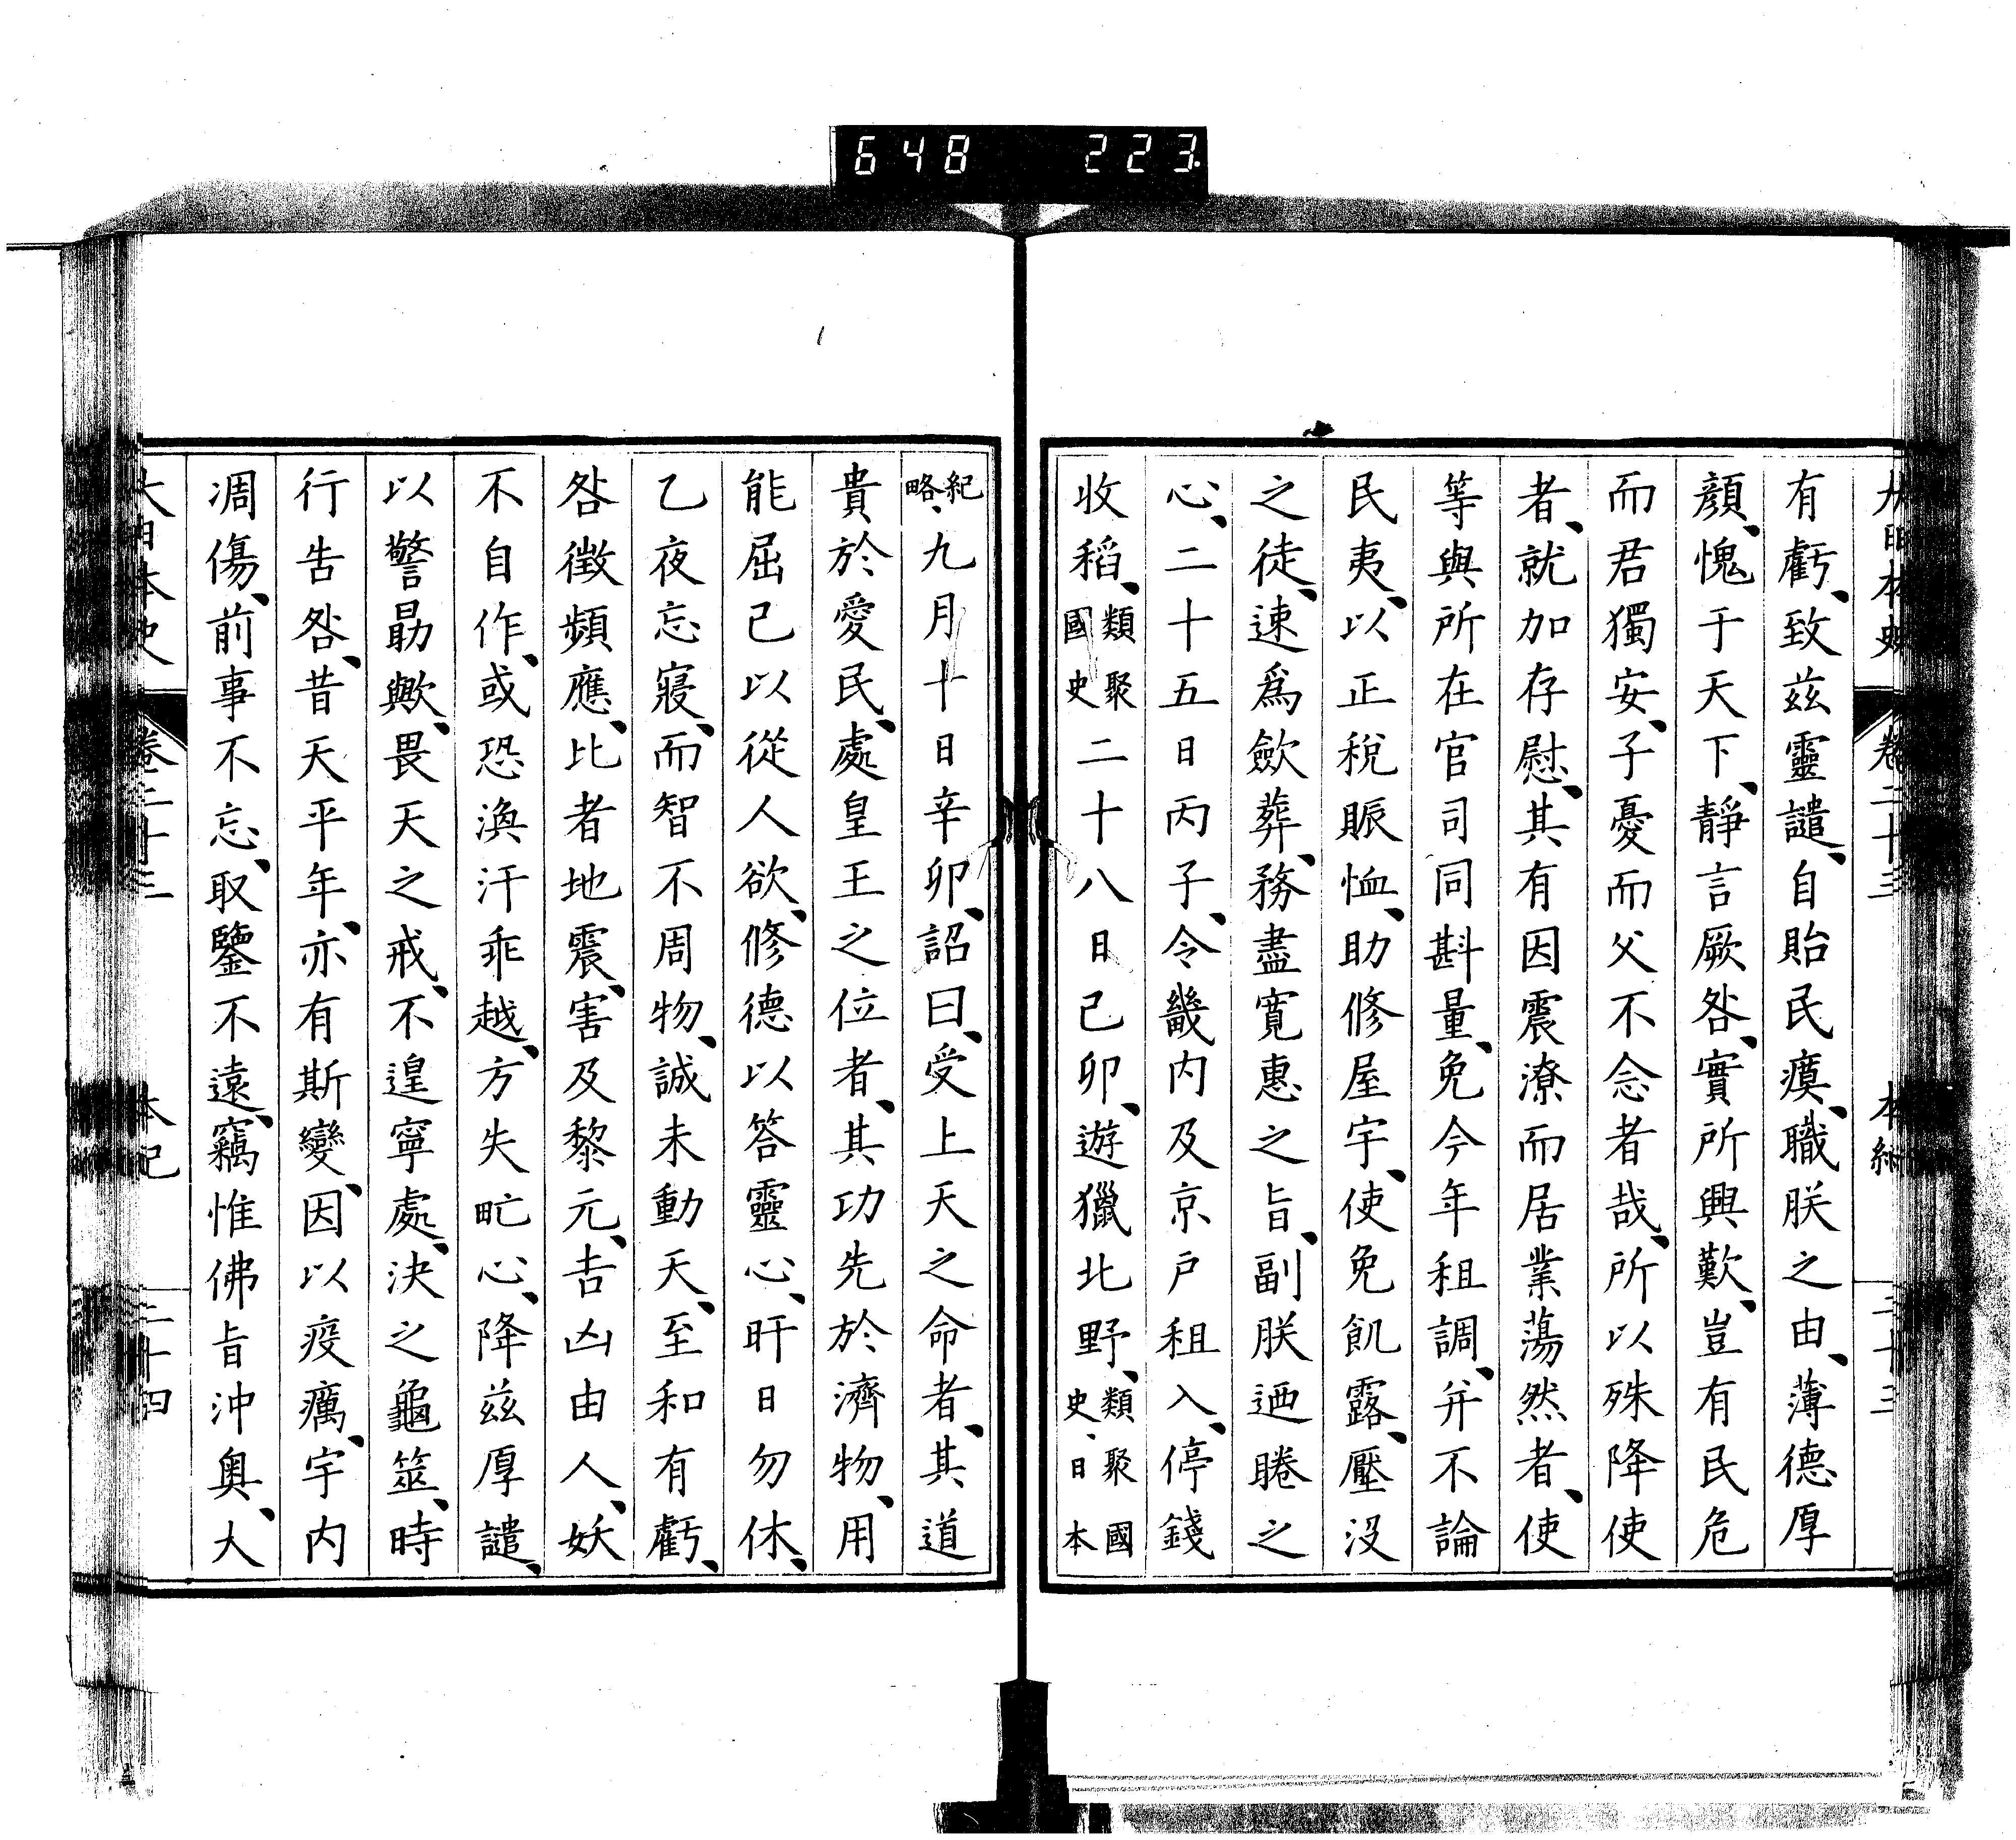 648 223
大日本史 卷二十三 本紀 二十三
有虧、致茲靈譴、自貽民瘼、職朕之由、薄德厚
顏、愧于天下、靜言厥咎、實所興歎、豈有民危
而君獨安、子憂而父不念者哉、所以殊降使
者、就加存慰、其有因震潦而居業蕩然者、使
等與所在官司同斟量、免今年租調、并不論
民夷、以正稅賑恤、助修屋宇、使免飢露、壓沒
之徒、速爲歛葬、務盡寬惠之旨、副朕迺睠之
心、二十五日丙子、令畿内及京戶租入、停錢
收稻、類聚國史 二十八日己卯、遊獵北野、類聚國史、日本
紀略、九月十日辛卯、詔曰、受上天之命者、其道
貴於愛民、處皇王之位者、其功先於濟物、用
能屈己以從人欲、修德以答靈心、旰日勿休、
乙夜忘寢、而智不周物、誠未動天、至和有虧、
咎徵頻應、比者地震、害及黎元、吉凶由人、妖
不自作、或恐渙汗乖越、方失甿心、降茲厚譴、
以警勗歟、畏天之戒、不遑寧處、決之龜筮、時
行告咎、昔天平年、亦有斯變、因以疫癘、宇内
凋傷、前事不忘、取鑒不遠、竊惟佛旨沖奧、大
大日本史 卷二十三 本紀 二十四